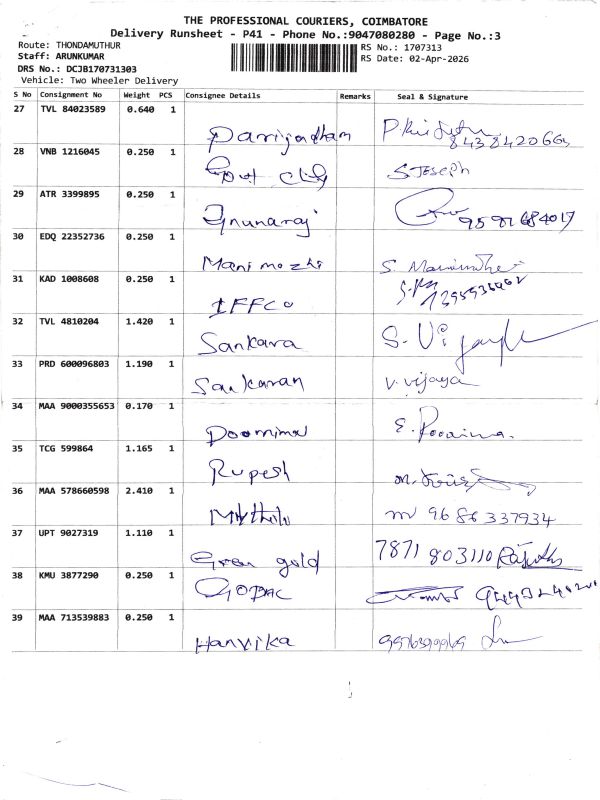 THE PROFESSIONAL COURIERS, COIMBATORE
Delivery Runsheet - P41 - Phone No.:9047080280 - Page No.:3
Route: THONDAMUTHUR
Staff: ARUNKUMAR
DRS No.: DCJB170731303
Vehicle: Two Wheeler Delivery
RS No.: 1707313
RS Date: 02-Apr-2026
S No Consignment No Weight PCS Consignee Details Remarks Seal & Signature
27 TVL 84023589 0.640 1
Parijatham
8438420669
28 VNB 1216045 0.250 1
S JOSEPH
29 ATR 3399895 0.250 1
Gnunaraj 9597684017
30 EDQ 22352736 0.250 1
Manimozhi S.
31 KAD 1008608 0.250 1
IFFCO
32 TVL 4810204 1.420 1
Sankara S. Vijay
33 PRD 600096803 1.190 1
Sankaran V. Vijaya
34 MAA 9000355653 0.170 1
Poornima E. Poornima.
35 TCG 599864 1.165 1
Rupesh M.
36 MAA 578660598 2.410 1
Mythili M 9686337934
37 UPT 9027319 1.110 1
Green gold 7871 803110
38 KMU 3877290 0.250 1
GOBAC
39 MAA 713539883 0.250 1
Hanvika 9976399969